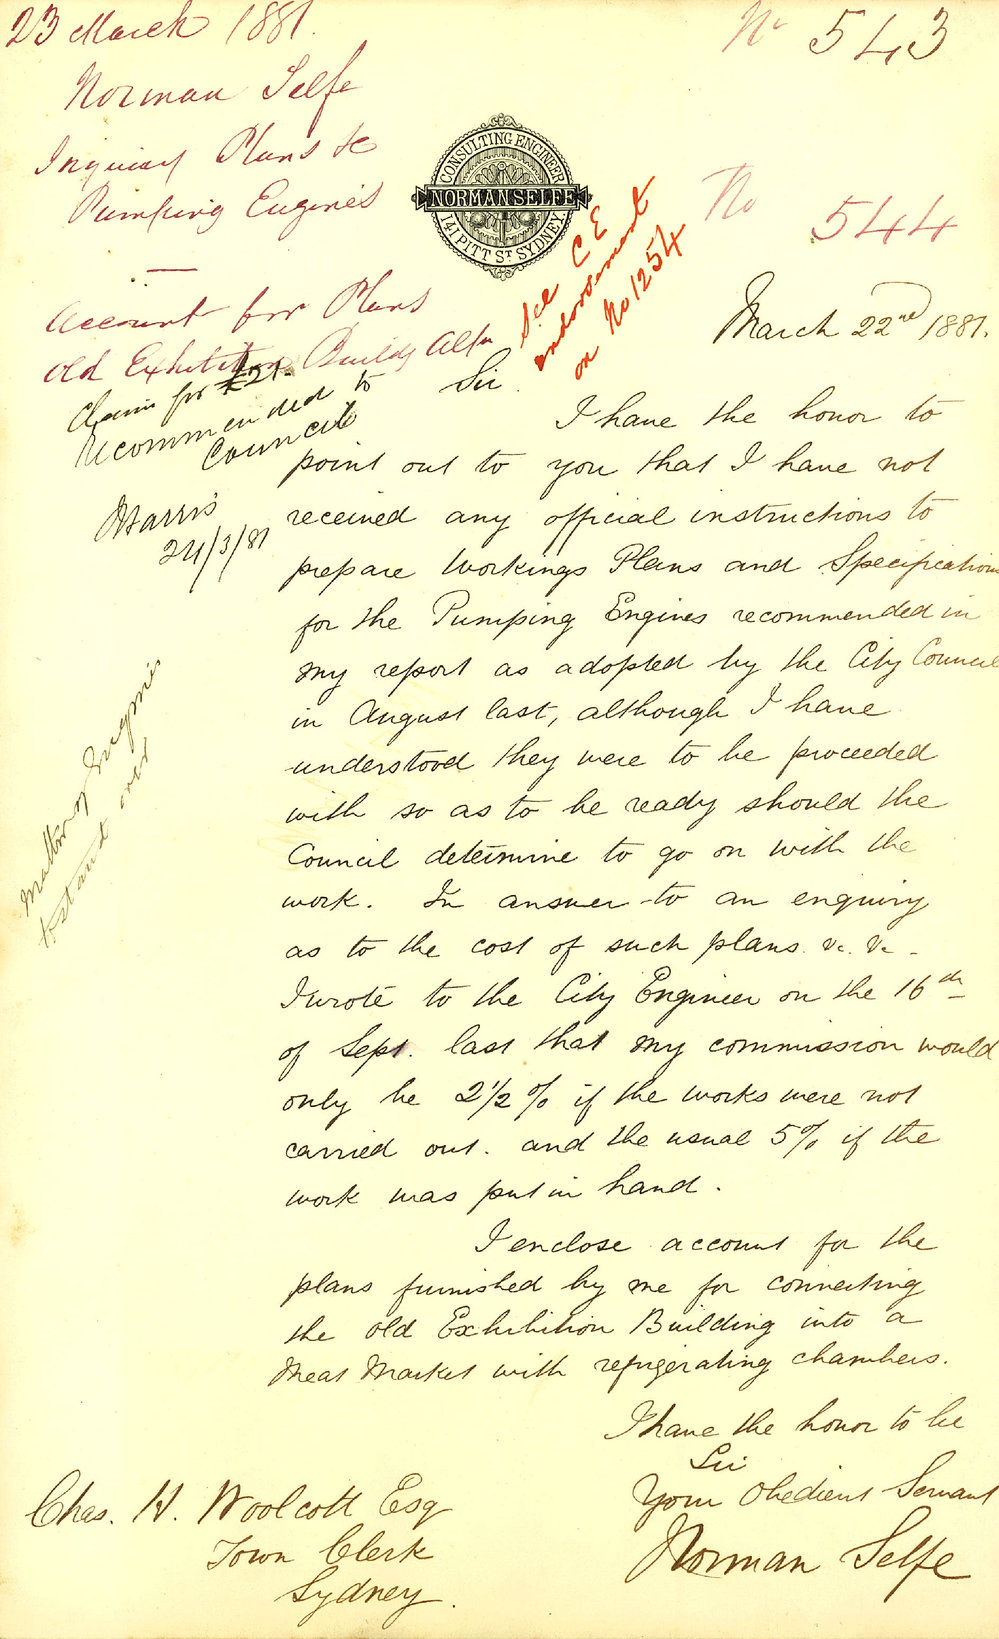 23 March 1881.
No 543
Norman Selfe
Inquiry Plans &c
Pumping Engines
CONSULTING ENGINEER
NORMAN SELFE
141 PITT ST SYDNEY
See C E
endorsement
on No 1254
No 544
Account for Plans
Old Exhibition Buildg
March 22nd 1881.
Claim for £21.
recommended to
Council
Harris
24/3/81
Matter of Engines
to stand over
Sir
I have the honor to
point out to you that I have not
received any official instructions to
prepare Workings Plans and Specifications
for the Pumping Engines recommended in
my report as adopted by the City Council
in August last, although I have
understood they were to be proceeded
with so as to be ready should the
Council determine to go on with the
work. In answer to an enquiry
as to the cost of such plans &c. &c.
I wrote to the City Engineer on the 16th
of Sept. last that my commission would
only be 2½ % if the works were not
carried out. and the usual 5% if the
work was put in hand.
I enclose account for the
plans furnished by me for connecting
the old Exhibition Building into a
Meat Market with refrigerating chambers.
I have the honor to be
Sir
Your Obedient Servant
Norman Selfe
Chas. H. Woolcott Esq
Town Clerk
Sydney.